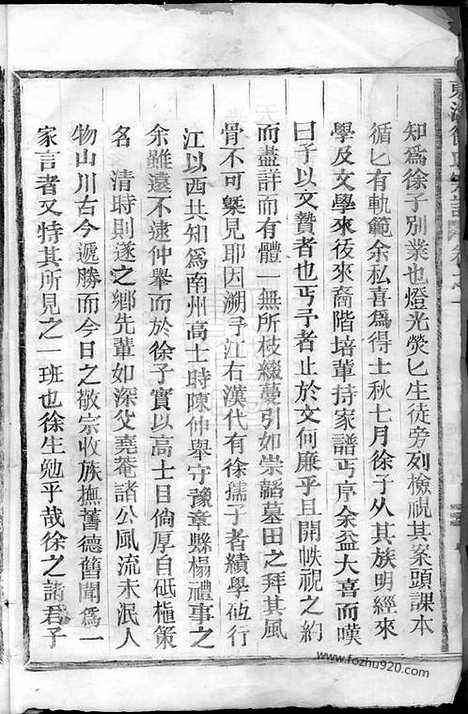 知爲徐子別業也燈光熒匕生徒旁列檢視其案頭課本
循匕有軌範余私喜爲得士秋七月徐子从其族明經來
學及文學來後來裔階培輩持家譜丐序余益大喜而嘆
曰子以又贊者也丐予者止於文何廉乎且開帙視之約
而盡詳而有體一無所枝綴蔓引如崇韜墓田之拜其風
骨不可槩見耶因溯乎江右漢代有徐孺子者績學砥行
江以西共知爲南州高士時陳仲舉守豫章縣榻禮事之
余雖遠不逮仲舉而於徐子實以高士目倘厚自砥
策
名　清時則遂之鄉先輩如深父堯菴諸公風流未泯人
物山川古今遞勝而今日之敬宗收族撫舊德舊聞爲一
家言者又特其所見之一班也徐生勉乎哉徐之諸君子
東海徐氏宗譜　卷之一
www.fozhu920.com